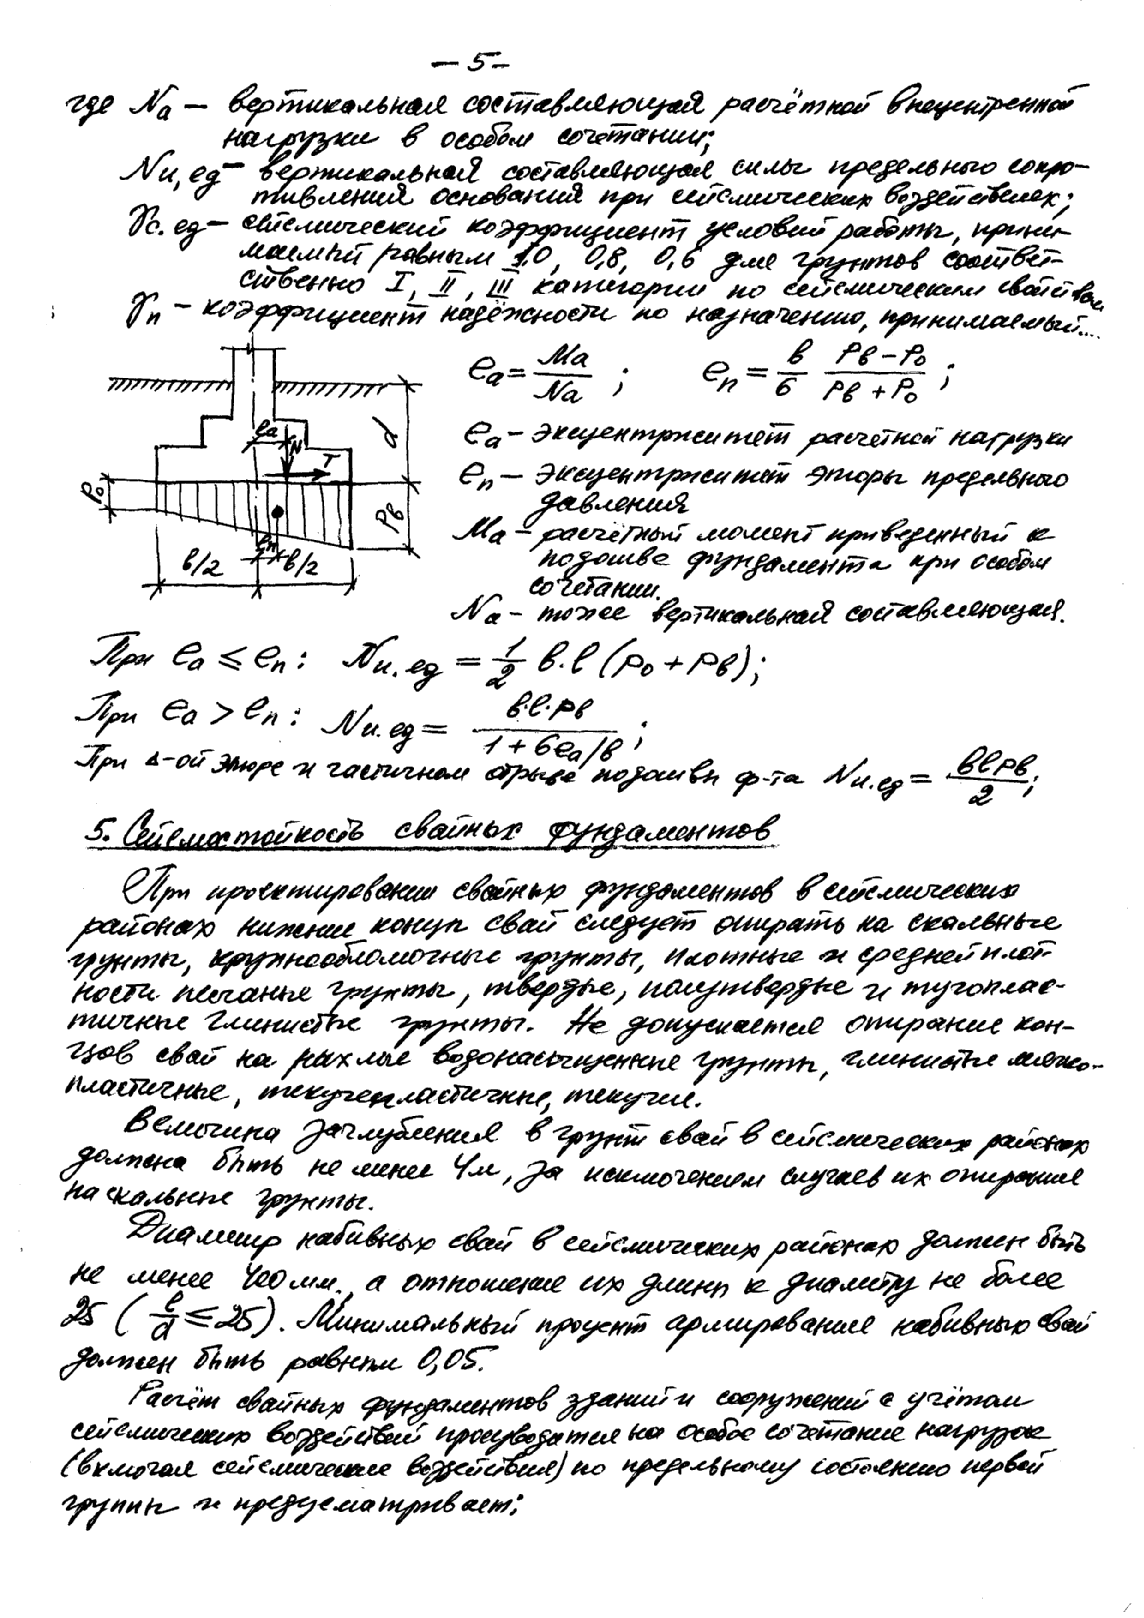 – 5 –
где Nа – вертикальная составляющая расчётной внецентренной
нагрузки в особом сочетании;
Nи,eд – вертикальная составляющая силы предельного сопро-
тивления основания при сейсмических воздействиях;
γс.eд – сейсмический коэффициент условий работы, прини-
маемый равным 1.0, 0,8, 0,6 для грунтов соответ-
ственно I, II, III категории по сейсмическим свойствам
γп – коэффициент надёжности по назначению, принимаемый....
eа = Mа/Nа ; eп = в/6 · (Pв – P0)/(Pв + P0) ;
eа
N
T
d
P0
Pв
eп
в/2
в/2
eа – эксцентриситет расчётной нагрузки
eп – эксцентриситет эпюры предельного
давления
Mа – расчётный момент приведенный к
подошве фундамента при особом
сочетании.
Nа – тоже вертикальная составляющая.
При eа ≤ eп : Nи.eд = 1/2 в.l (P0 + Pв);
При eа > eп : Nи.eд = в·l·Pв/(1 + 6eа/в) ;
При Δ-ой эпюре и частичном отрыве подошвы ф-та Nи.eд = вlPв/2 ;
5. Сейсмостойкость свайных фундаментов
При проектировании свайных фундаментов в сейсмических
районах нижние концы свай следует опирать на скальные
грунты, крупнообломочные грунты, плотные и средней плот-
ности песчаные грунты, твердые, полутвердые и тугоплас-
тичные глинистые грунты. Не допускается опирание кон-
цов свай на рыхлые водонасыщенные грунты, глинистые мягко-
пластичные, текучепластичные, текучие.
Величина заглубления в грунт свай в сейсмических районах
должна быть не менее 4м, за исключением случаев их опирания
на скальные грунты.
Диаметр набивных свай в сейсмических районах должен быть
не менее 400 мм., а отношение их длины к диаметру не более
25 ( l/d ≤ 25). Минимальный процент армирования набивных свай
должен быть равным 0,05.
Расчёт свайных фундаментов зданий и сооружений с учётом
сейсмических воздействий производится на особое сочетание нагрузок
(включая сейсмические воздействия) по предельному состоянию первой
группы и предусматривает: